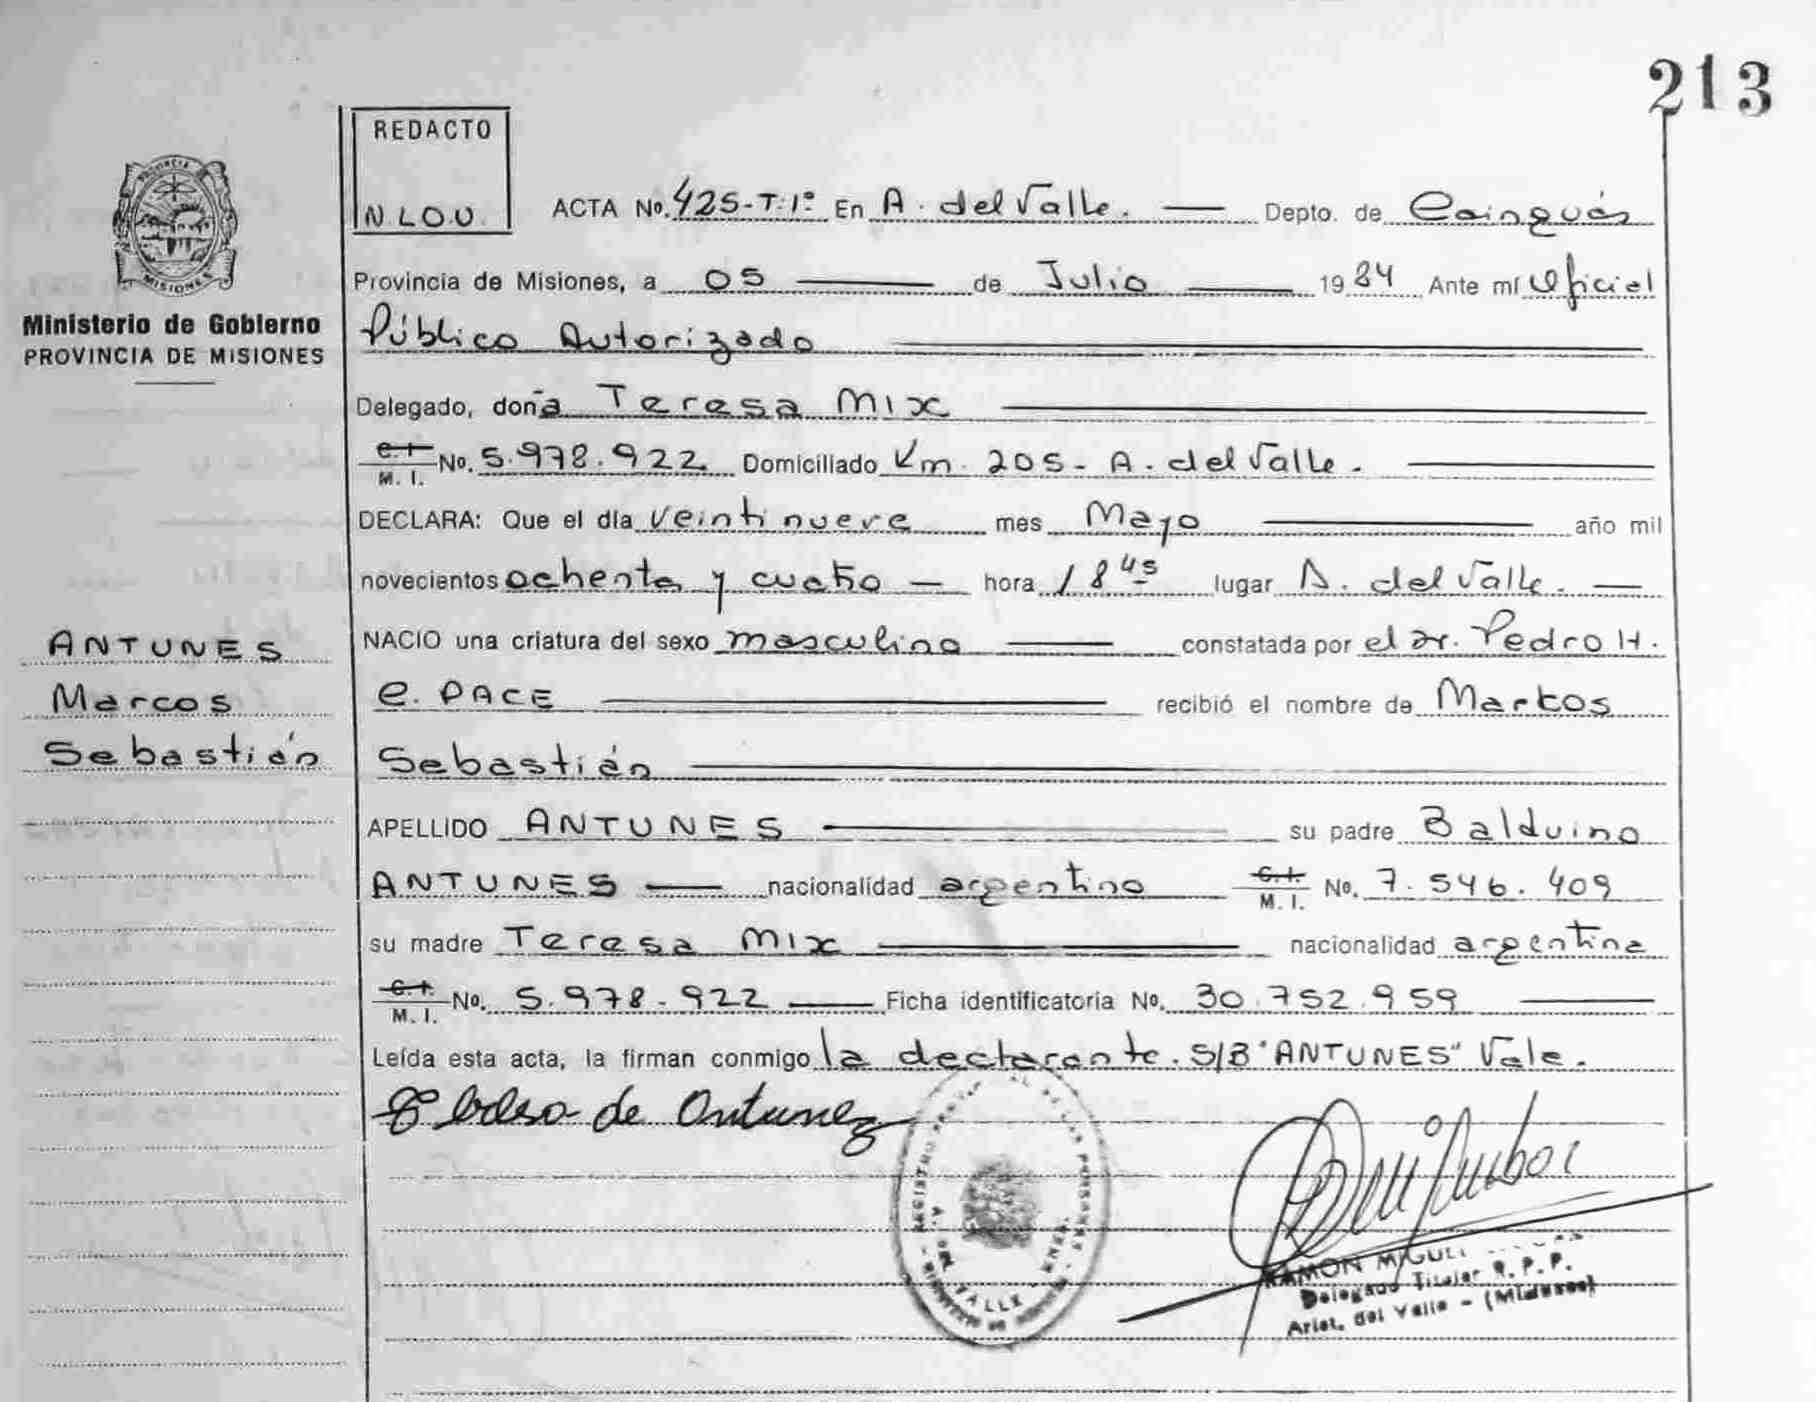 213
REDACTO
N.L.O.U.
ACTA No. 425-T:1º En A. del Valle. Depto. de Cainguás
Provincia de Misiones, a 05 de Julio 1984 Ante mí Oficial
Ministerio de Gobierno
PROVINCIA DE MISIONES
Público Autorizado
Delegado, doña Teresa MIX
C.I. M. I. No. 5.978.922 Domiciliado Km. 205- A. del Valle.
DECLARA: Que el día veinti nueve mes Mayo año mil
novecientos ochenta y cuatro hora 18 45 lugar A. del Valle.
NACIO una criatura del sexo masculino constatada por el Dr. Pedro H.
ANTUNES
Marcos
Sebastián
E. PACE recibió el nombre de Markos
Sebastián
APELLIDO ANTUNES su padre Balduino
ANTUNES nacionalidad argentino C.I. M. I. No. 7.546.409
su madre Teresa MIX nacionalidad argentina
C.I. M. I. No. 5.978.922 Ficha identificatoria No. 30.752.959
Leída esta acta, la firman conmigo la declarante. S/B "ANTUNES" Vale.
de Antunez
RAMON MIGUEL
Delegado Titular R. P. P.
Arist. del Valle - (Misiones)